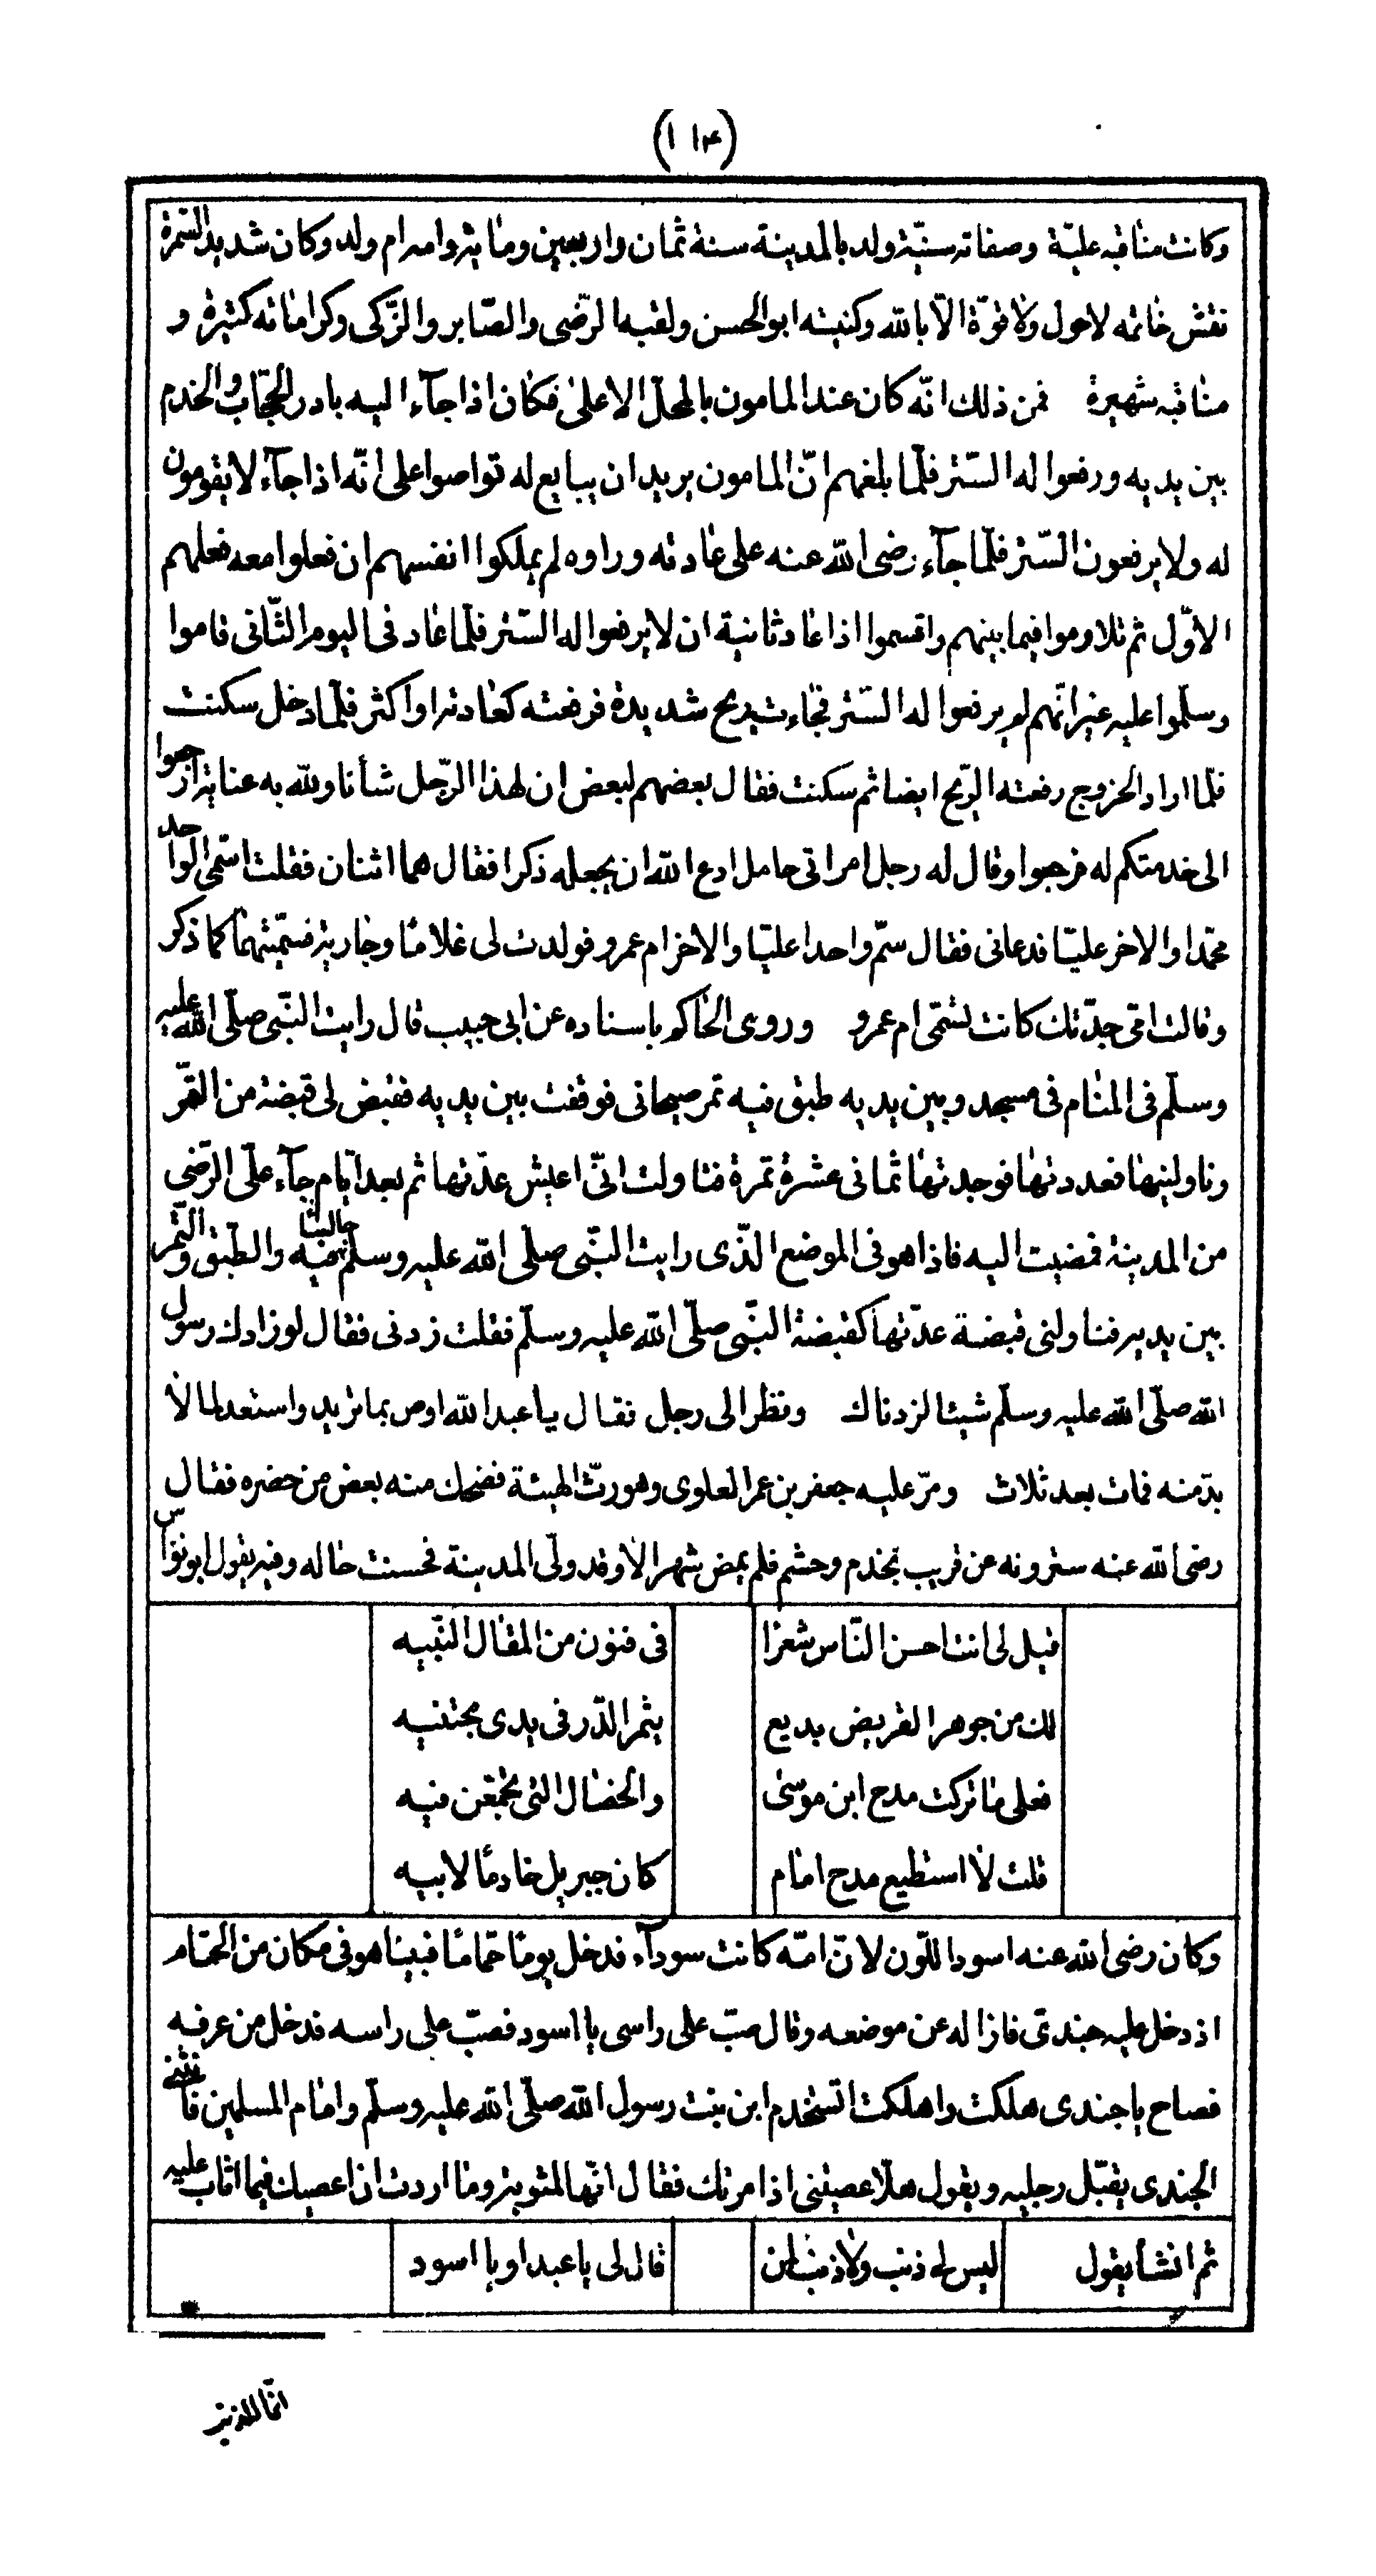 (۱۱۴)
وكانت مناقبه عليّة وصفاته سنيّة ولد بالمدينة سنة ثمان واربعين ومائة وامه ام ولد وكان شديد السّمرة
نقش خاتمه لاحول ولاقوّة الاّ بالله وكنيته ابوالحسن ولقبه الرّضى والصّابر والزّكى وكراماته كثيرة و
مناقبه شهيرة فمن ذلك انّه كان عند المامون بالمحلّ الاعلى فكان اذا جآء اليه بادر الحجّاب والخدم
بين يديه ورفعوا له السّتر فلمّا بلغهم انّ المامون يريد ان يبايع له تواصوا على انّه اذا جآء لايقومون
له ولايرفعون السّتر فلمّا جآء رضى الله عنه على عادته وراوه لم يملكوا انفسهم ان فعلوا معه فعلهم
الاوّل ثم تلاوموا فيما بينهم واقسموا اذا عاد ثانية ان لايرفعوا له السّتر فلمّا عاد فى اليوم الثّانى قاموا
وسلّموا عليه غير انّهم لم يرفعوا له السّتر فجاءت ريح شديدة فرفعته كعادته او اكثر فلمّا دخل سكنت
فلمّا اراد الخروج رفعته الرّيح ايضا ثم سكنت فقال بعضهم لبعض ان لهذا الرّجل شأنا ولله به عناية ارجعوا
الى خدمتكم له فرجعوا وقال له رجل امراتى حامل ادع الله ان يجعله ذكرا فقال هما اثنان فقلت اسمّى الواحد
محمّدا والاخر عليّا فدعانى فقال سمّ واحدا عليّا والاخر ام عمرو فولدت لى غلامًا وجارية فسمّيتهما كما ذكر
وقالت امّى جدّتك كانت تسمّى ام عمرو وروى الحاكم باسناده عن ابى حبيب قال رايت النّبى صلّى الله عليه
وسلّم فى المنام فى مسجد وبين يديه طبق فيه تمر صيحانى فوقفت بين يديه فقبض لى قبضة من التّمر
وناولنيها فعددتها فوجدتها ثمانى عشرة تمرة فتاولت انّى اعيش عدّتها ثم بعد ايّام جآء علّى الرّضى
من المدينة فمضيت اليه فاذا هو فى الموضع الّذى رايت النّبى صلّى الله عليه وسلّم جالسًا فيه والطّبق والتّمر
بين يديه فناولنى قبضة عدّتها كقبضة النّبى صلّى الله عليه وسلّم فقلت زدنى فقال لو زادك رسول
الله صلّى الله عليه وسلّم شيئا لزدناك ونظر الى رجل فقال يا عبد الله اوص بما تريد واستعد لما لا
بدّ منه فمات بعد ثلاث ومرّ عليه جعفر بن عمر العلوى وهو رثّ الهيئة فضحك منه بعض من حضره فقال
رضى الله عنه سترونه عن قريب بخدم وحشم فلم يمض شهر الا وقد ولّى المدينة فحسنت حاله وفيه يقول ابو نواس
قيل لى انت احسن النّاس شعرا فى فنون من المقال النّبيه
لك من جوهر القريض بديع يثمر الدّر فى يدى مجتنيه
فعلى ما تركت مدح ابن موسى والخصال التى تجمّعن فيه
قلت لا استطيع مدح امام كان جبريل خادمًا لابيه
وكان رضى الله عنه اسود اللّون لانّ امّه كانت سودآء فدخل يومًا حمّامًا فبينا هو فى مكان من الحمّام
اذ دخل عليه جندىّ فازاله عن موضعه وقال صبّ على راسى يا اسود فصبّ على راسه فدخل من عرفه
فصاح يا جندى هلكت واهلكت اتستخدم ابن بنت رسول الله صلّى الله عليه وسلّم وامام المسلمين فانثنى
الجندى يقبّل رجليه ويقول هلاّ عصيتنى اذ امرتك فقال انّها لمثوبة وما اردت ان اعصيك فيما اثاب عليه
ثم انشأ يقول ليس لى ذنب ولا ذنب لمن قال لى يا عبد او يا اسود
انّما الذنب